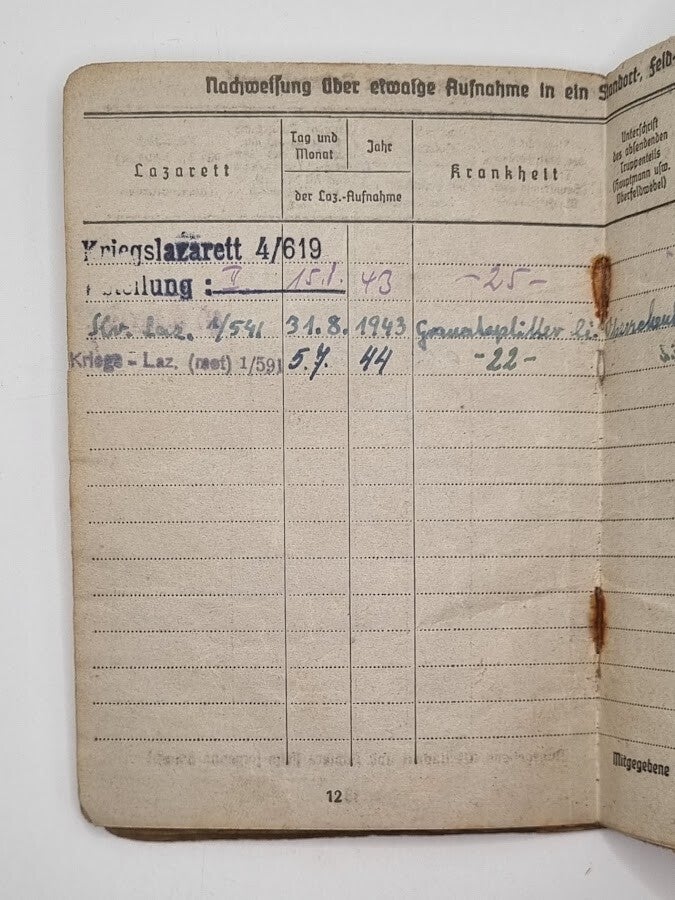 Nachweisung über etwaige Aufnahme in ein Standort-, Feld-
Lazarett
Tag und Monat
Jahr
der Laz.-Aufnahme
Krankheit
Unterschrift
des absendenden
Truppenteils
(Hauptmann usw.
Oberfeldwebel)
Kriegslazarett 4/619
Abteilung : II 15.1. 43 -25-
Laz. 1/541 31. 8. 1943 Granatsplitter li.
Kriegs-Laz. (mot) 1/591 5.7. 44 -22-
Mitgegebene
12